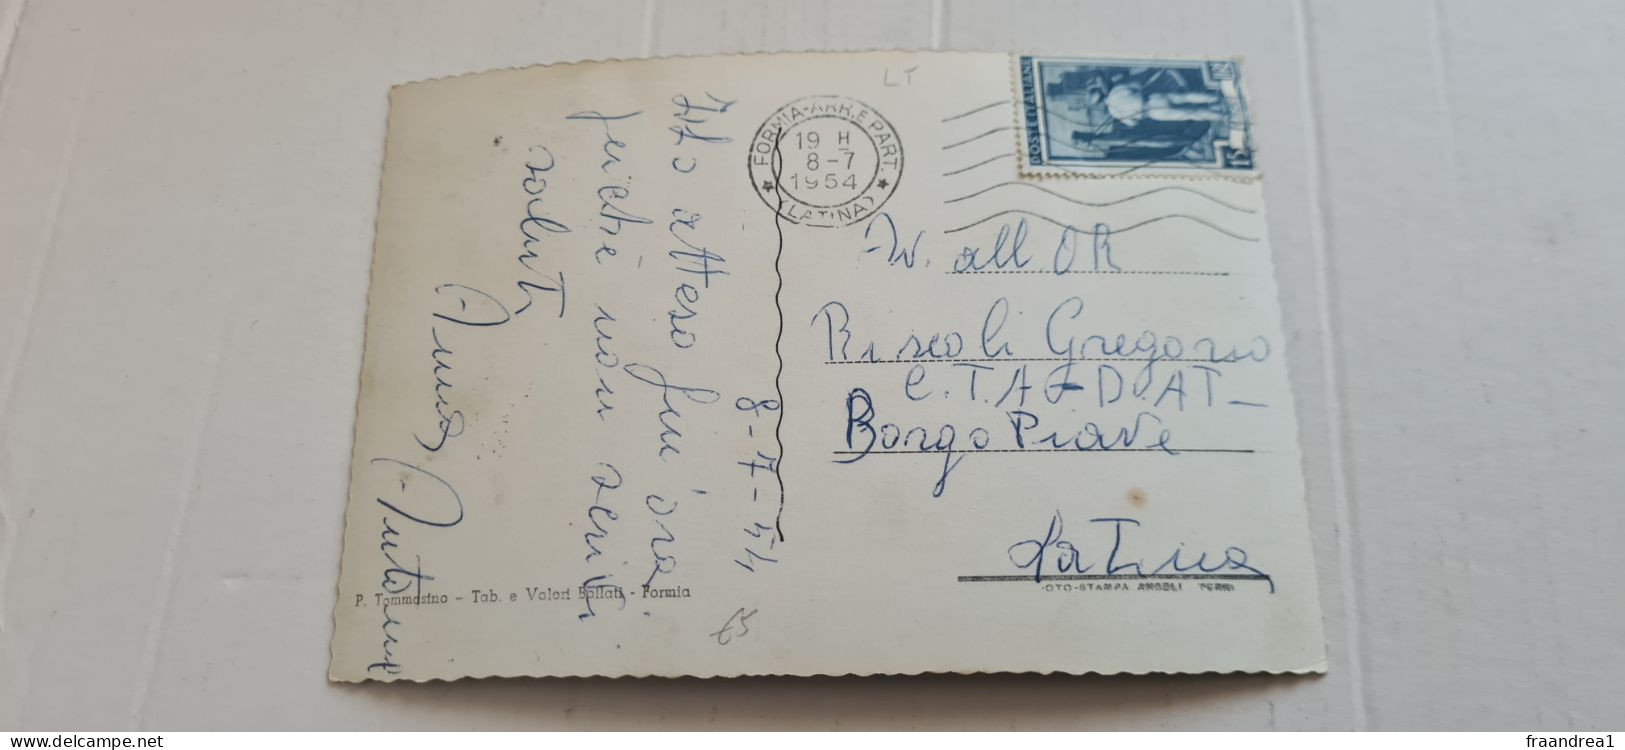 LT
FORMIA-ARR.E PART.
19 H
8-7
1954
(LATINA)
POSTE ITALIANE
8-7-54
Ho atteso fin'ora
perchè non scrivi
saluti
Antonio
all. OR
Riscoli Gregorio
C.T.A.-D.AT-
Borgo Piave
Latina
P. Tommasino - Tab. e Valori Bollati - Formia
OTO-STAMPA ANGELI TERNI
65
www.delcampe.net
fraandrea1